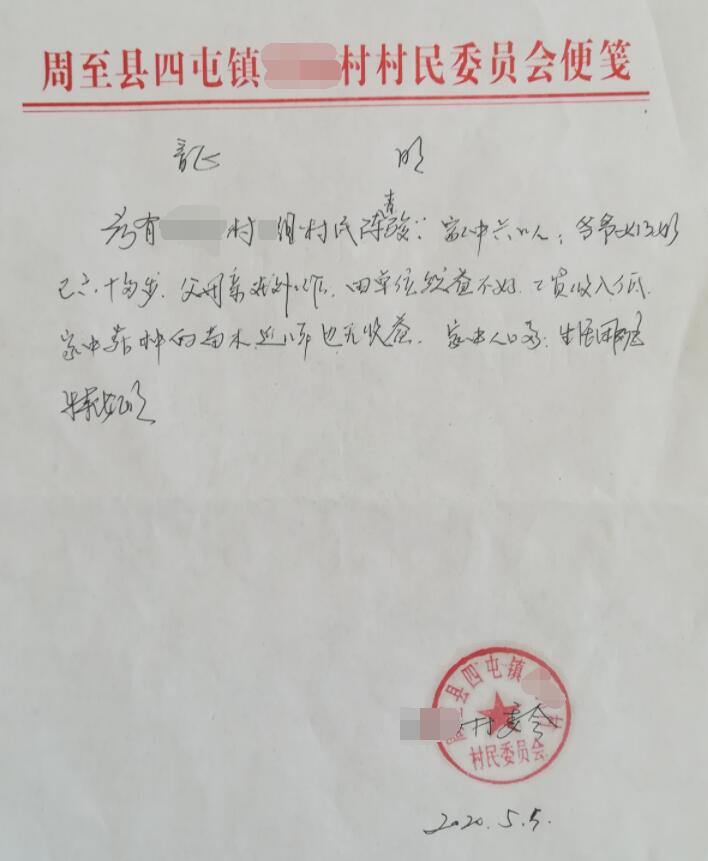 周至县四屯镇村村民委员会便笺
证 明
兹有村组村民陈青:家中六口人,爷爷
已六十多岁.父母亲在外工作.因单位效益不好.工资收入低.
家中栽种的苗木近几年也无收益.家中人口多;生活困难
特此证明
县四屯镇
村委会
村民委员会
2020.5.5.